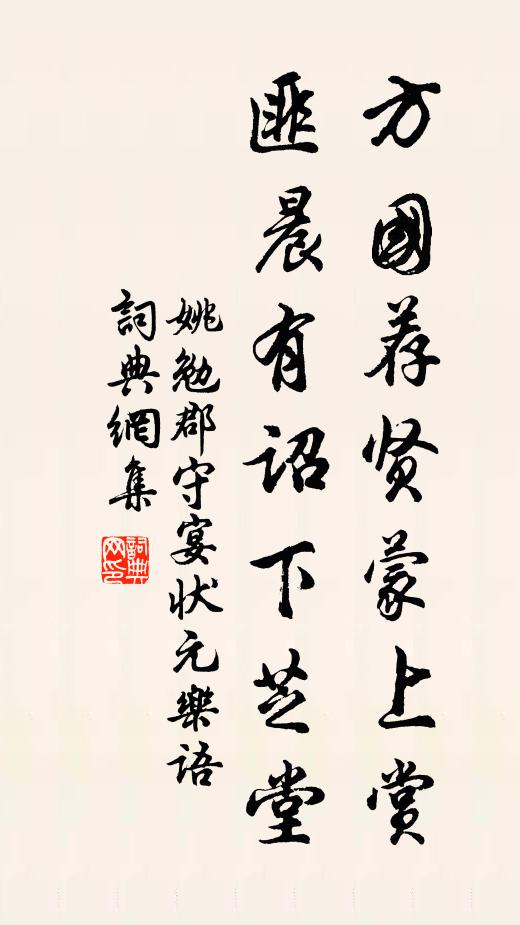 方國荐贤蒙上赏
匪晨有诏下芝堂
姚勉郡守宴状元樂语
詞典網集
詞典网印